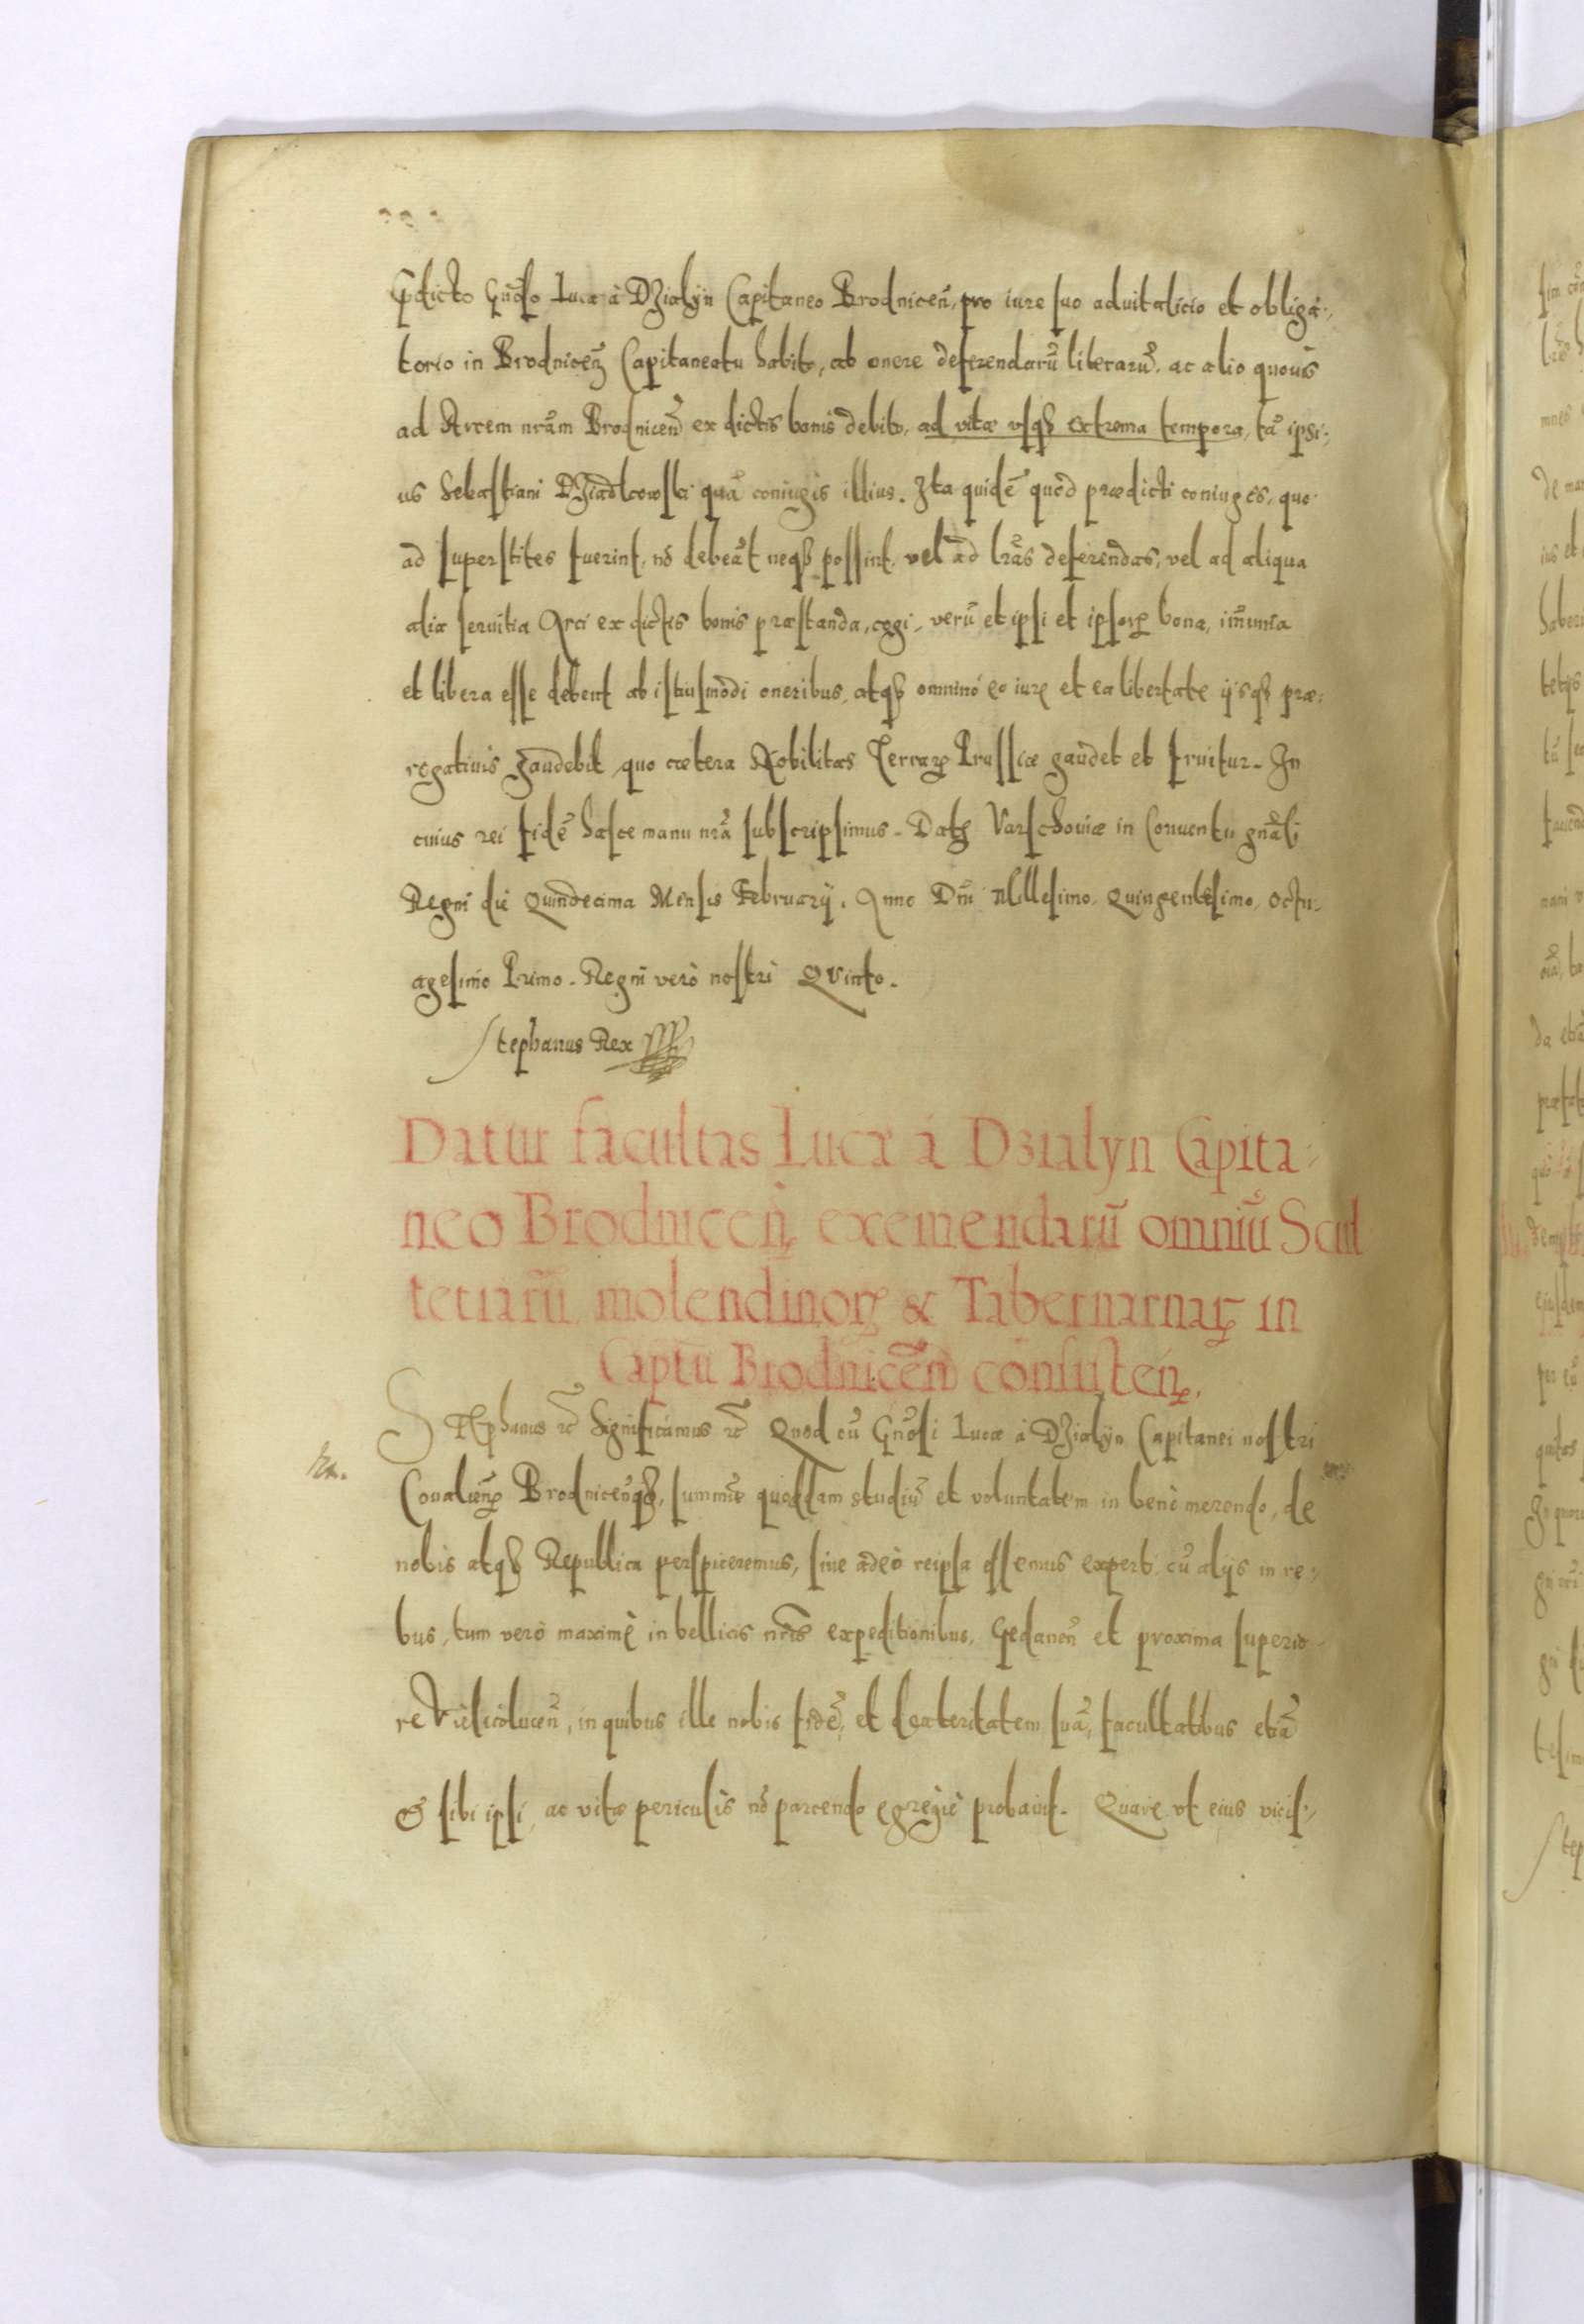 Pdicto Gnoso Lucæ à Dzialyn Capitaneo Brodnicen, pro iure suo aduitalicio et obliga-
torio in Brodnicen Capitaneatu habito, ab onere deferendarũ literarũ, ac alio quouis
ad Arcem nrãm Brodnicen ex dictis bonis debito, ad vitæ vsq3 extrema tempora, tã ipsi-
us Sebastiani Dziadkowski quã coniugis illius. Ita quidẽ quod prædicti coniuges, quo
ad superstites fuerint, nõ debeãt neq3 possint, vel ad lrãs deferendas, vel ad aliqua
alia seruitia Arci ex dictis bonis præstanda, cogi, verũ et ipsi et ipsorꝝ bona, im̃unia
et libera esse debent ab istiusmodi oneribus, atq3 omninò eo iure et ea libertate ijsq3 præ-
regatiuis gaudebit, quo cætera Nobilitas Terrarꝝ Prussiæ gaudet et fruitur. In
cuius rei fidẽ hasce manu nrã subscripsimus. Dat3 Varschouiæ in Conuentu gnãli
Regni die Quindecima Mensis February. Anno Dñi Millesimo, Quingentesimo, Octu-
agesimo Primo. Regni verò nostri Qvinto.
Stephanus Rex
Datur facultas Lucæ á Dzialyn Capita-
neo Brodnicen̄ exemendarũ omniũ Scul
tetiarũ, molendinorꝝ & Tabernarnarꝝ in
Captũ Brodnicẽn consisten̄.
STEphanus etc Significamus etc Quod cũ Gnosi Lucæ à Dzialyn Capitanei nostri
Coualienꝝ Brodnicenq3, summũ quoddam studiũ et voluntatem in benè merendo, de
nobis atq3 Republica perspiceremus, siue adeò reipsa essemus experti, cũ alijs in re-
bus, tum verò maximè in bellicis nrĩs expeditionibus, Gedanen̄ et proxima superio-
re Vielicolucen̄, in quibus ille nobis fidẽ, et dexteritatem suã, facultatibus etiã
& sibi ipsi, ac vitæ periculis nõ parcendo egregiè probauit. Quare vt eius vicis-